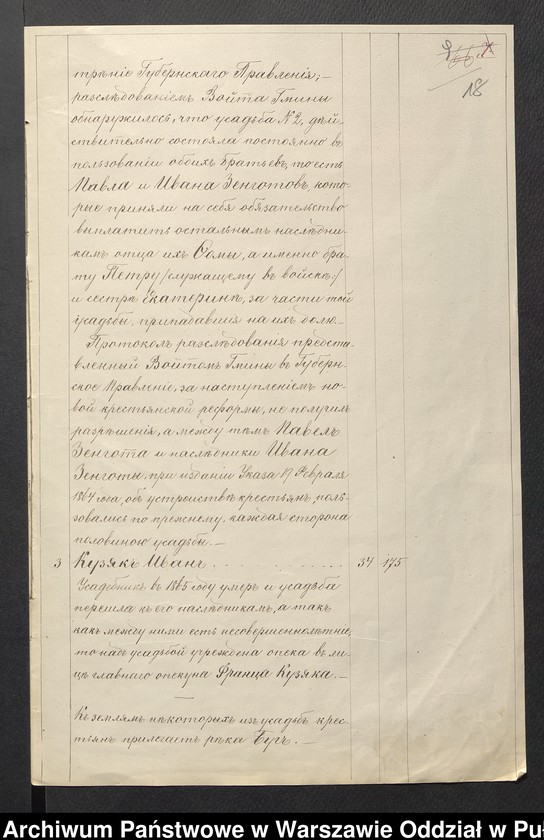 18
трѣніе Губернскаго Правленія;—
разслѣдованіемъ Войта Гмины
обнаружилось, что усадьба № 2, дѣй
ствительно состояла постоянно въ
пользованіи обоихъ братьевъ, то есть
Павла и Ивана Зенготовъ, кото-
рые приняли на себя обязательство
выплатить остальнымъ наслѣдни-
камъ отца ихъ Ѳомы, а именно бра-
ту Петру /служащему въ войскѣ:/
и сестрѣ Екатеринѣ, за части той
усадьбы, припадавшія на ихъ долю.—
Протоколъ разслѣдованія предста-
вленный Войтомъ Гмины въ Губерн-
ское Правленіе, за наступленіемъ но-
вой крестьянской реформы, не получилъ
разрѣшенія, а между тѣмъ Павелъ
Зенгота и наслѣдники Ивана
Зенготы, при изданіи Указа 19 Февраля
1864 года, объ устройствѣ крестьянъ, поль-
зовались по прежнему, каждая сторона
половиною усадьбы.—
3 Кузякъ Иванъ . . . . . . . . . . . 34 175
Усадебникъ въ 1865 году умеръ и усадьба
перешла къ его наслѣдникамъ, а такъ
какъ между ними есть несовершеннолѣтніе,
то надъ усадьбой учреждена опека въ ли-
цѣ главнаго опекуна Франца Кузяка.—
Къ землямъ нѣкоторыхъ изъ усадьбъ крес-
тьянъ прилегаетъ рѣка Бугъ.—
Archiwum Państwowe w Warszawie Oddział w Pu